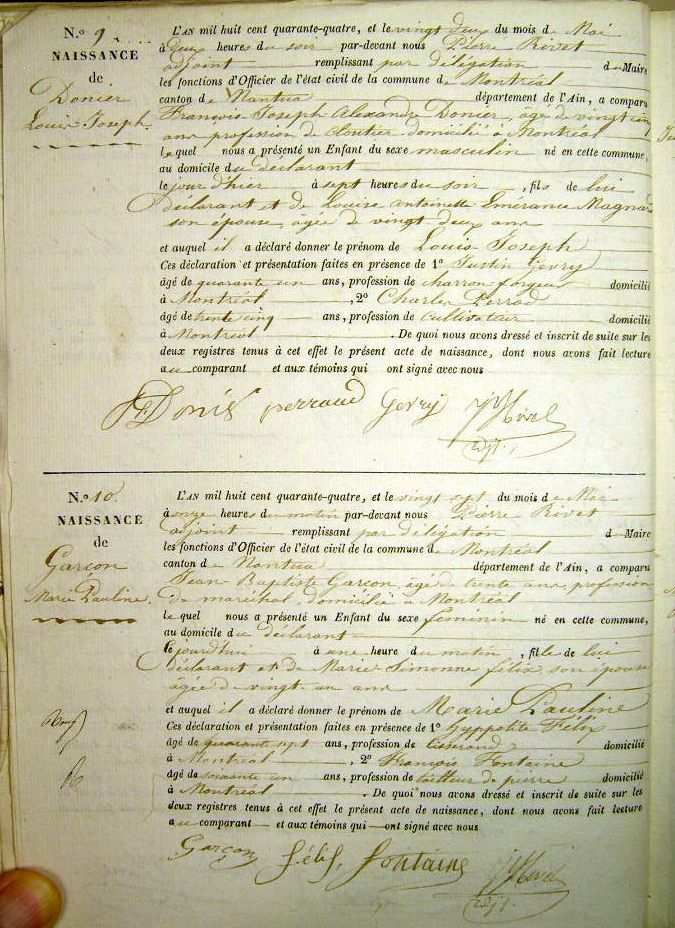 N.o 9
NAISSANCE
de
Donier
Louis Joseph.
L'AN mil huit cent quarante-quatre, et le vingt deux du mois de Mai
à deux heures du soir par-devant nous Pierre Rivet
adjoint remplissant par délégation de Maire
les fonctions d'Officier de l'état civil de la commune de Montréal
canton de Nantua département de l'Ain, a comparu
François Joseph Alexandre Donier, agé de vingt cinq
ans profession de cloutier domicilié à Montréal
lequel nous a présenté un Enfant du sexe masculin né en cette commune,
au domicile du déclarant
le jour d'hier à sept heures du soir, fils de lui
déclarant et de Louise Antoinette Emérance Magnard
son épouse, agée de vingt deux ans
et auquel il a déclaré donner le prénom de Louis Joseph
Ces déclaration et présentation faites en présence de 1o Justin Gevry
âgé de quarante un ans, profession de charron forgeur domicilié
à Montréal, 2o Charles Perrod
âgé de trente cinq ans, profession de cultivateur domicilié
à Montréal. De quoi nous avons dressé et inscrit de suite sur les
deux registres tenus à cet effet le présent acte de naissance, dont nous avons fait lecture
au comparant et aux témoins qui ont signé avec nous
Donié perraud Gevry Rivet
adjt.
N.o 10
NAISSANCE
de
Garçon
Marie Pauline.
L'AN mil huit cent quarante-quatre, et le vingt sept du mois de Mai
à onze heures du matin par-devant nous Pierre Rivet
adjoint remplissant par délégation de Maire
les fonctions d'Officier de l'état civil de la commune de Montréal
canton de Nantua département de l'Ain, a comparu
Jean-Baptiste Garçon, agé de trente ans, profession
de maréchal, domicilié à Montréal
lequel nous a présenté un Enfant du sexe feminin né en cette commune,
au domicile du déclarant
cejourd'hui à une heure du matin, fille de lui
déclarant et de Marie Simonne Félix son épouse
agée de vingt un ans
et auquel il a déclaré donner le prénom de Marie Pauline
Ces déclaration et présentation faites en présence de 1o Hyppolite Félix
âgé de quarante sept ans, profession de tisserand domicilié
à Montréal, 2o François Fontaine
âgé de soixante un ans, profession de tailleur de pierre domicilié
à Montréal. De quoi nous avons dressé et inscrit de suite sur les
deux registres tenus à cet effet le présent acte de naissance, dont nous avons fait lecture
au comparant et aux témoins qui ont signé avec nous
Garçon félix fontaine Rivet
adjt.